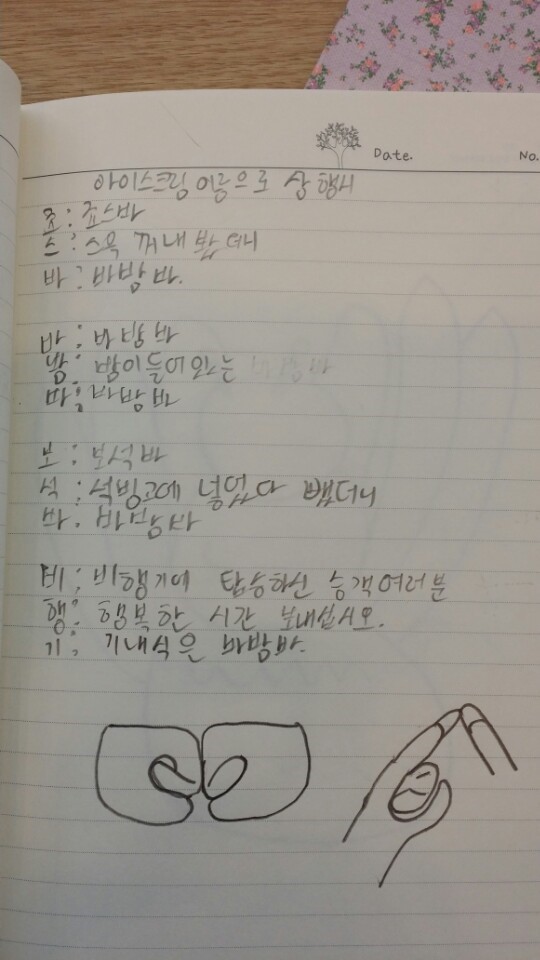 Date.
No.
아이스크림 이름으로 삼행시
죠: 죠스바
스: 스윽 꺼내 봤더니
바: 바밤바.
바: 바밤바
밤: 밤이들어와는
바: 바밤바
보: 보석바
석: 석빙고에 넣었다 뺐더니
바: 바밤바
비: 비행기에 탑승하신 승객여러분
행: 행복한 시간 보내십시오.
기: 기내식은 바밤바.